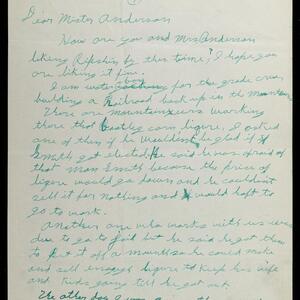 Dear Mister Anderson
How are you and Mrs Anderson
liking Ripshin by this time? I hope you
are liking it fine.
I am water boy for the grade crew
building a railroad back up in the mountain
There are mountaineers working
there that bootleg corn liquor, I asked
one of them if he wouldent be glad if
Smith got elected he said he was afraid of
that man Smith because the prices of
liquor would go down and he couldent
sell it for nothing and would haft to
go to work.
Another one who works with us was
due to go to jail but he said he got them
to put it off a month so he could make
and sell enough liquor to keep his wife
and kids going till he got out.
The other day I was